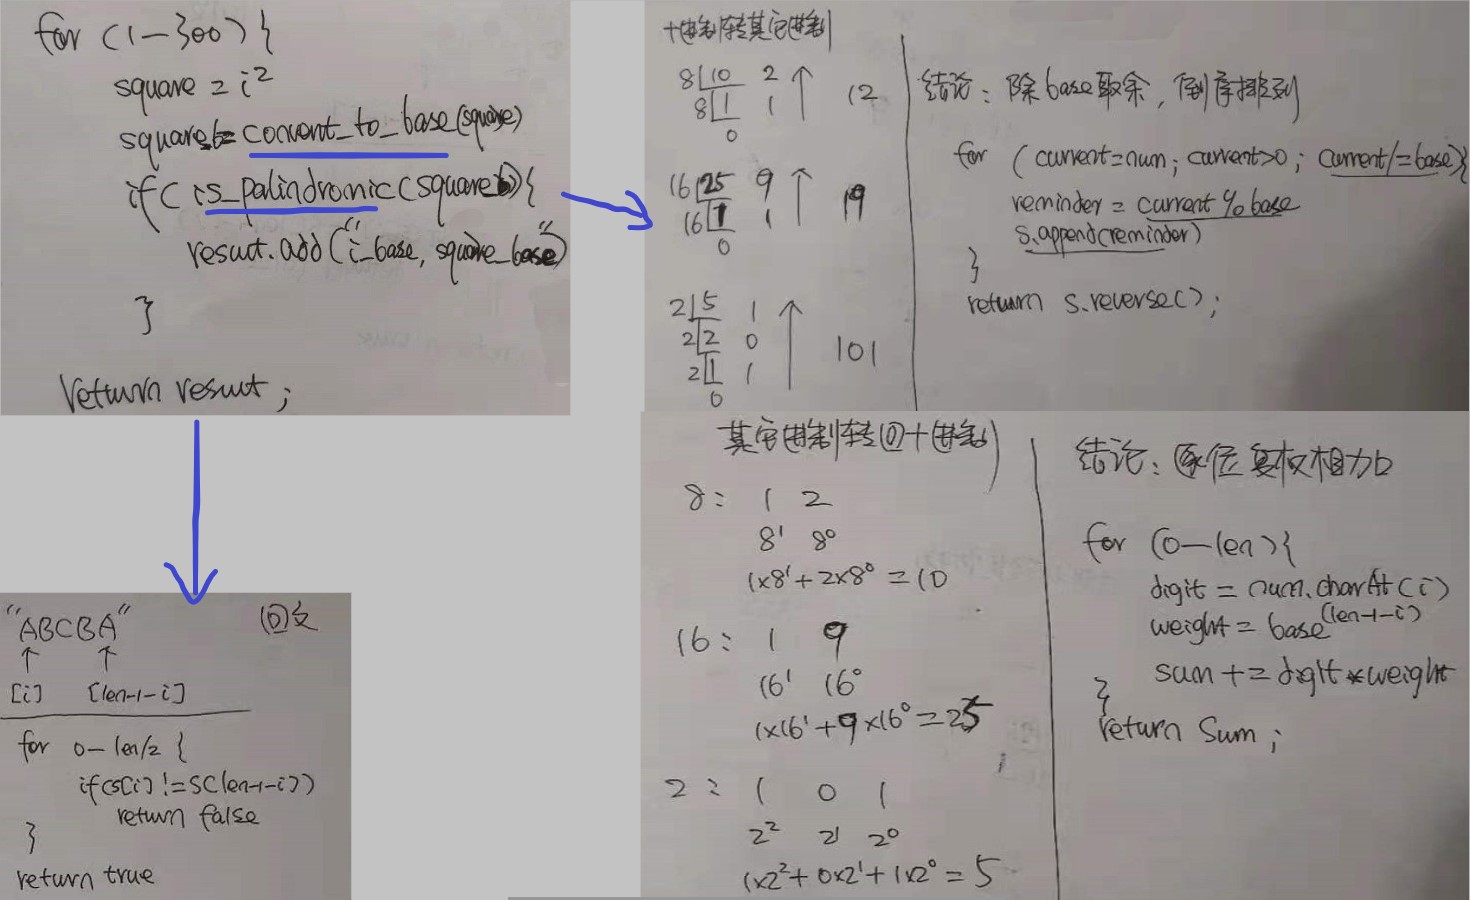 for (1-300) {
square = i²
squareb = convent_to_base(square)
if ( is_palindromic(squareb)){
result.add("i_base, square_base")
}
return result;
"ABCBA"
回文
[i] [len-1-i]
for 0-len/2 {
if(s[i] != s(len-1-i))
return false
}
return true
十进制转其它进制
8 10 2
8 1 1 12
0
16 25 9
16 1 1 19
0
2 5 1
2 2 0 101
2 1 1
0
结论：除base取余，倒序排列
for (current=num; current>0; current/=base){
reminder = current % base
s.append(reminder)
}
return s.reverse();
其它进制转回十进制
8: 1 2
8¹ 8⁰
1x8¹+2x8⁰ = 10
16: 1 9
16¹ 16⁰
1x16¹+9x16⁰=25
2: 1 0 1
2² 2¹ 2⁰
1x2²+0x2¹+1x2⁰=5
结论：逐位复权相加
for (0-len){
digit = num.charAt(i)
weight = base^(len-1-i)
sum += digit*weight
}
return sum;